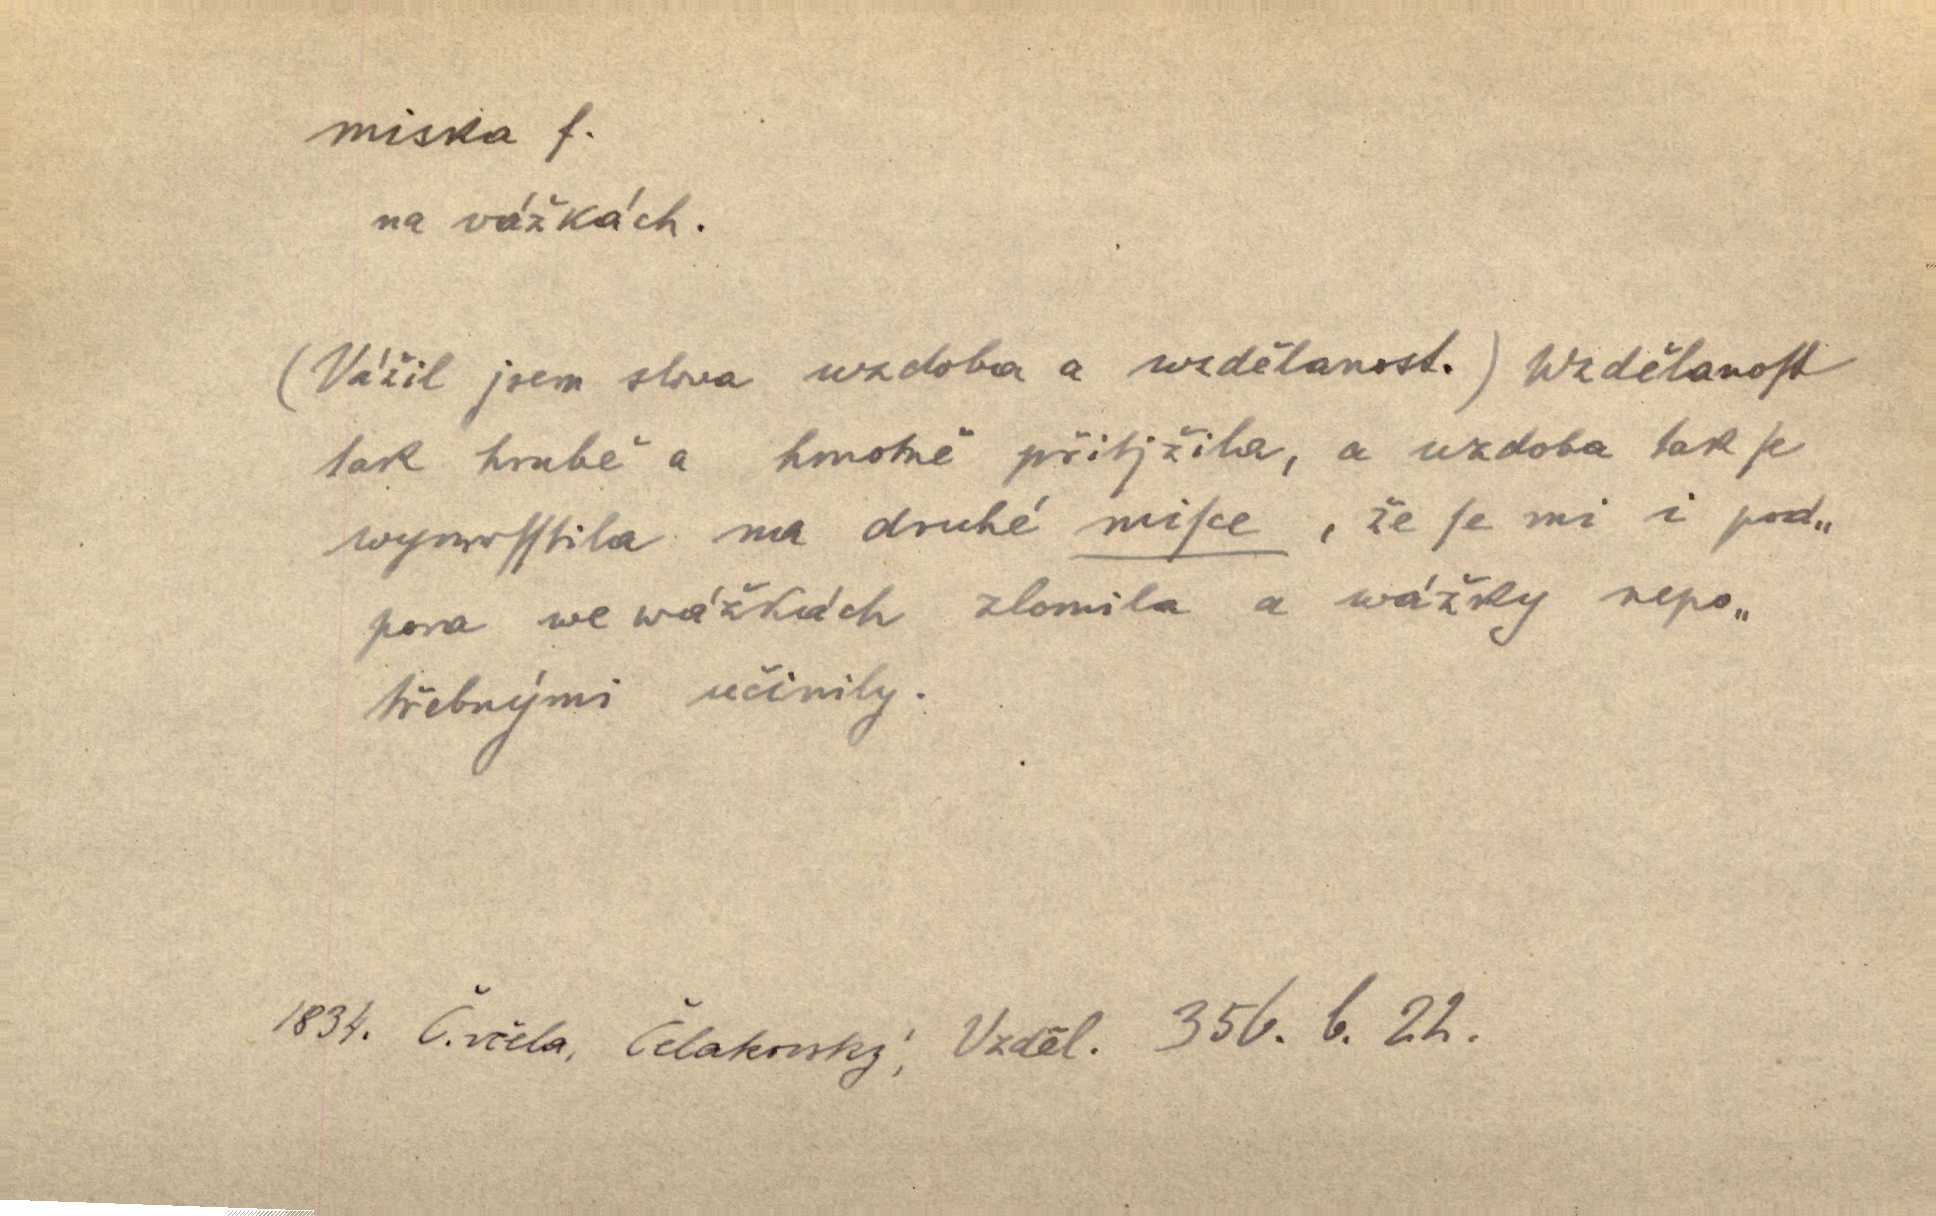 miska f.
na vážkách.
(Vážil jsem slova uzdoba a wzdělanost.) Wzdělanoſt
tak hrubě a hmotně přitjžila, a uzdoba tak ſe
wymrſſtila na druhé miſce, že ſe mi i pod„
pora we wážkách zlomila a wážky nepo„
třebnými učinily.
1834. Č.včela, Čelakovský; Vzděl. 356. b. 22.